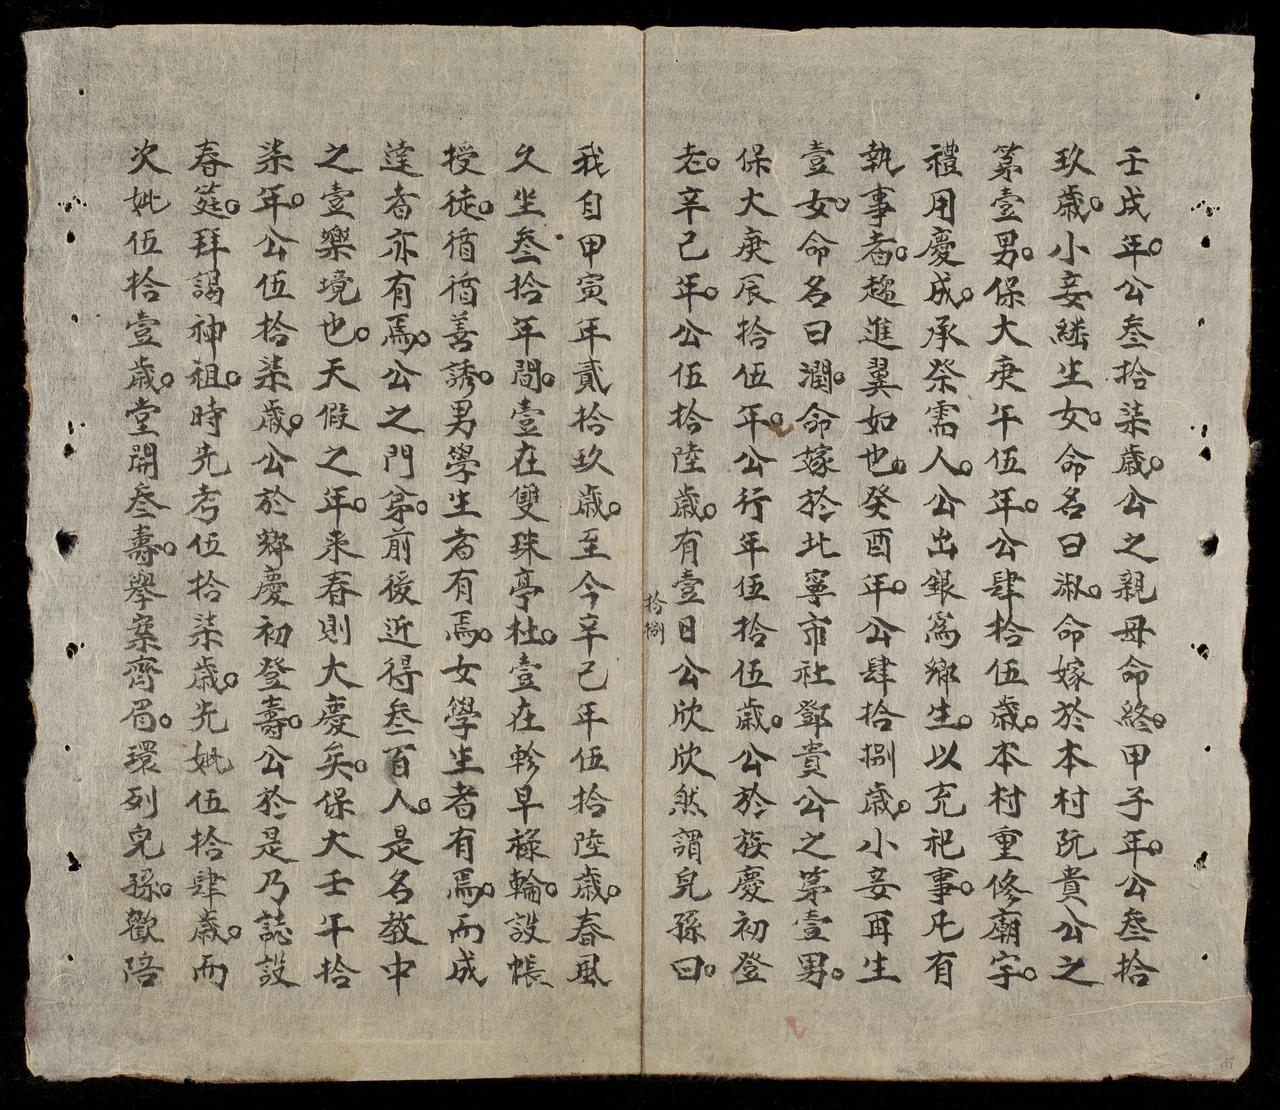 壬戌年。公叁拾柒歲。公之親母命終。甲子年。公叁拾
玖歲。小妾𦆯生女。命名曰淑。命嫁於本村阮貴公之
第壹男。保大庚午伍年。公肆拾伍歲。本村重修廟宇。
禮用慶成。承祭需人。公出銀爲鄉生。以充祀事。凡有
執事者。趨進翼如也。癸酉年。公肆拾捌歲。小妾再生
壹女。命名曰潤。命嫁於北寧市社鄧貴公之第壹男。
保大庚辰拾伍年。公行年伍拾伍歲。公於族慶初登
老。辛己年。公伍拾陸歲。有壹日公欣欣然謂兒孫曰。
拾捌
我自甲寅年貳拾玖歲。至今辛己年伍拾陸歲。春風
久坐叁拾年間。壹在雙珠亭杜。壹在軫早祿輪。設帳
授徒。循循善誘。男學生者有焉。女學生者有焉。而成
達者亦有焉。公之門弟。前後近得叁百人。是名教中
之壹樂境也。天假之年。来春則大慶矣。保大壬午拾
柒年。公伍拾柒歲。公於鄉慶初登壽。公於是乃誌設
春筵。拜謁神祖。時先考伍拾柒歲。先妣伍拾肆歲。而
次妣伍拾壹歲。堂開叁壽。擧案齊眉。環列兒孫。歡陪